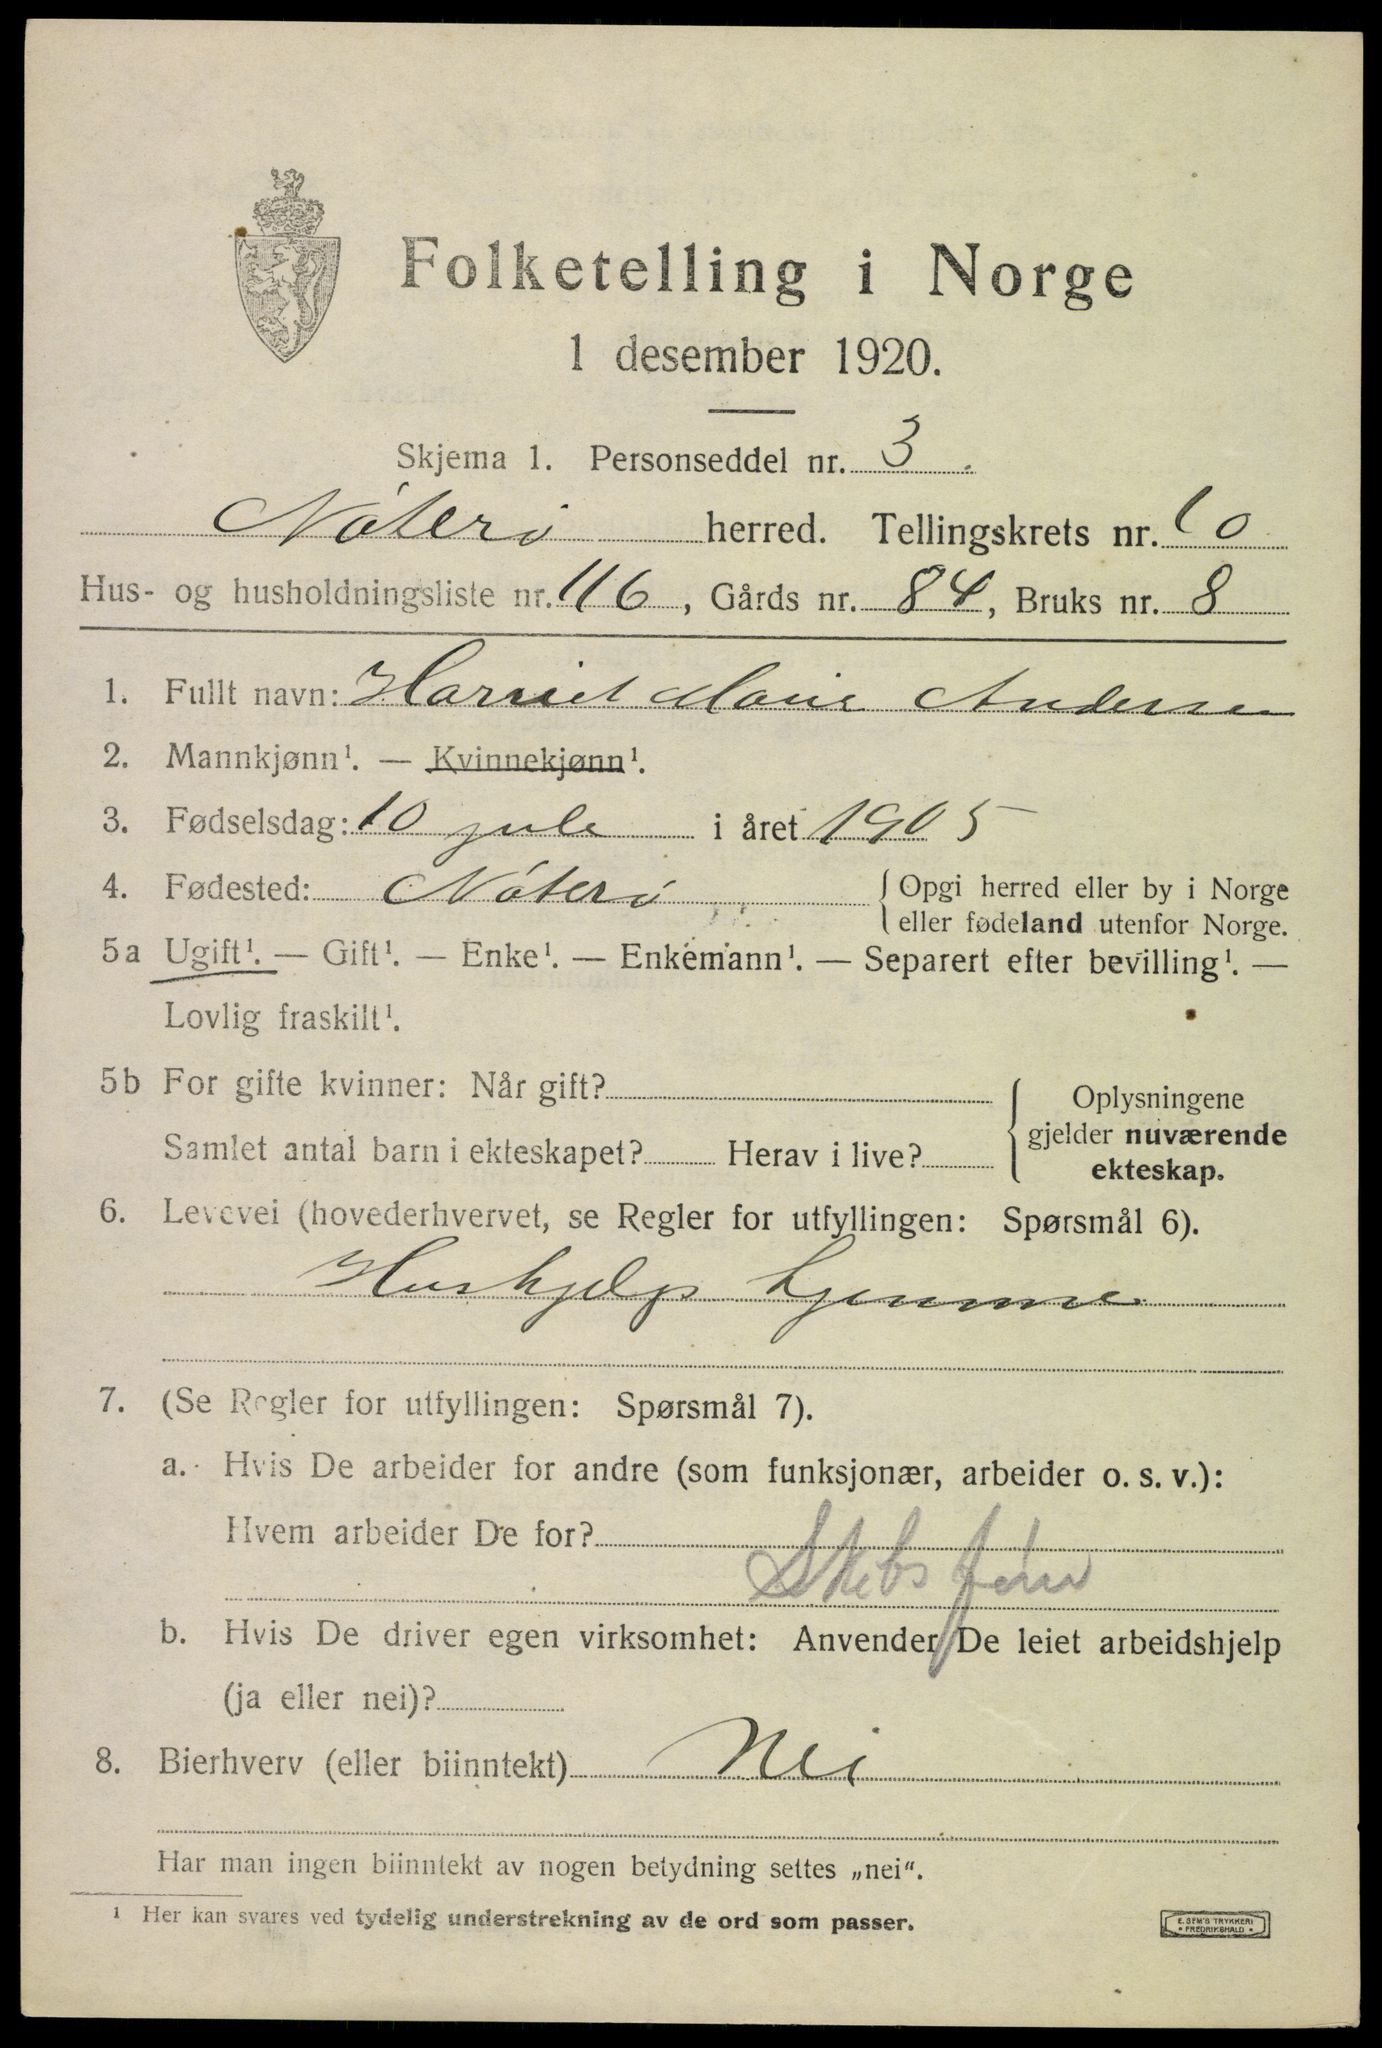 Folketelling i Norge
1 desember 1920.
Skjema 1. Personseddel nr. 3.
Nøterø herred. Tellingskrets nr. 10
Hus- og husholdningsliste nr. 116, Gårds nr. 84, Bruks nr. 8
1. Fullt navn: Harriet Marie Andersen
2. Mannkjønn¹. — Kvinnekjønn¹.
3. Fødselsdag: 10 jule i året 1905
4. Fødested: Nøterø { Opgi herred eller by i Norge
eller fødeland utenfor Norge.
5a Ugift¹. — Gift¹. — Enke¹. — Enkemann¹. — Separert efter bevilling¹. —
Lovlig fraskilt¹.
5b For gifte kvinner: Når gift?
Samlet antal barn i ekteskapet? Herav i live?
{ Oplysningene
gjelder nuværende
ekteskap.
6. Levevei (hovederhvervet, se Regler for utfyllingen: Spørsmål 6).
Hushjelp hjemme
7. (Se Regler for utfyllingen: Spørsmål 7).
a. Hvis De arbeider for andre (som funksjonær, arbeider o. s. v.):
Hvem arbeider De for?
Skibsfører
b. Hvis De driver egen virksomhet: Anvender De leiet arbeidshjelp
(ja eller nei)?
8. Bierhverv (eller biinntekt) Nei
Har man ingen biinntekt av nogen betydning settes „nei“.
¹ Her kan svares ved tydelig understrekning av de ord som passer.
E. SEM'S TRYKKERI
• FREDRIKSHALD •